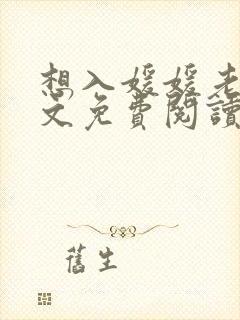 想入媛媛老
文免費閱讀
舊生